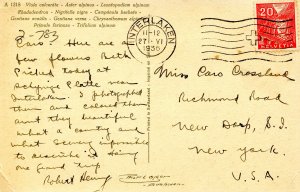 A 1318 - Viola calcarata - Aster alpinus - Leontopodium alpinum
Rhododendron - Nigritella nigra - Campanula barbata -
Gentiana verna - Chrysanthemum alpinum
Primula farinosa - Trifolium alpinum
2-783
Caro: Here are a
few flowers Beth
Picked today at
Schynige Platte near
Interlaken. I photographed
them and colored them
aint they beautiful
what a country and
what scenery impossible
to describe it being
one grand trip
Robert Hening
INTERLAKEN
11-12
27. VI
1936
20
HELVETIA
Miss Caro Crossland
Richmond Road
New Dorp, S. I.
New York.
U. S. A.